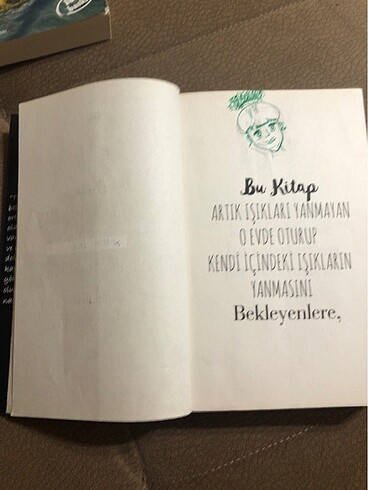 Bu Kitap
ARTIK IŞIKLARI YANMAYAN
O EVDE OTURUP
KENDİ İÇİNDEKİ IŞIKLARIN
YANMASINI
Bekleyenlere,